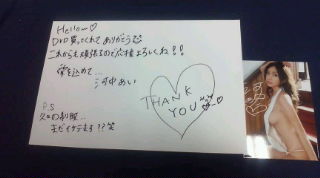 Hello〜♡
DVD買ってくれてありがとう
これからも頑張るので応援よろしくね!!
愛を込めて...
河中あい
THANK
YOU
P.S
久々の制服...
まだイケてます??笑